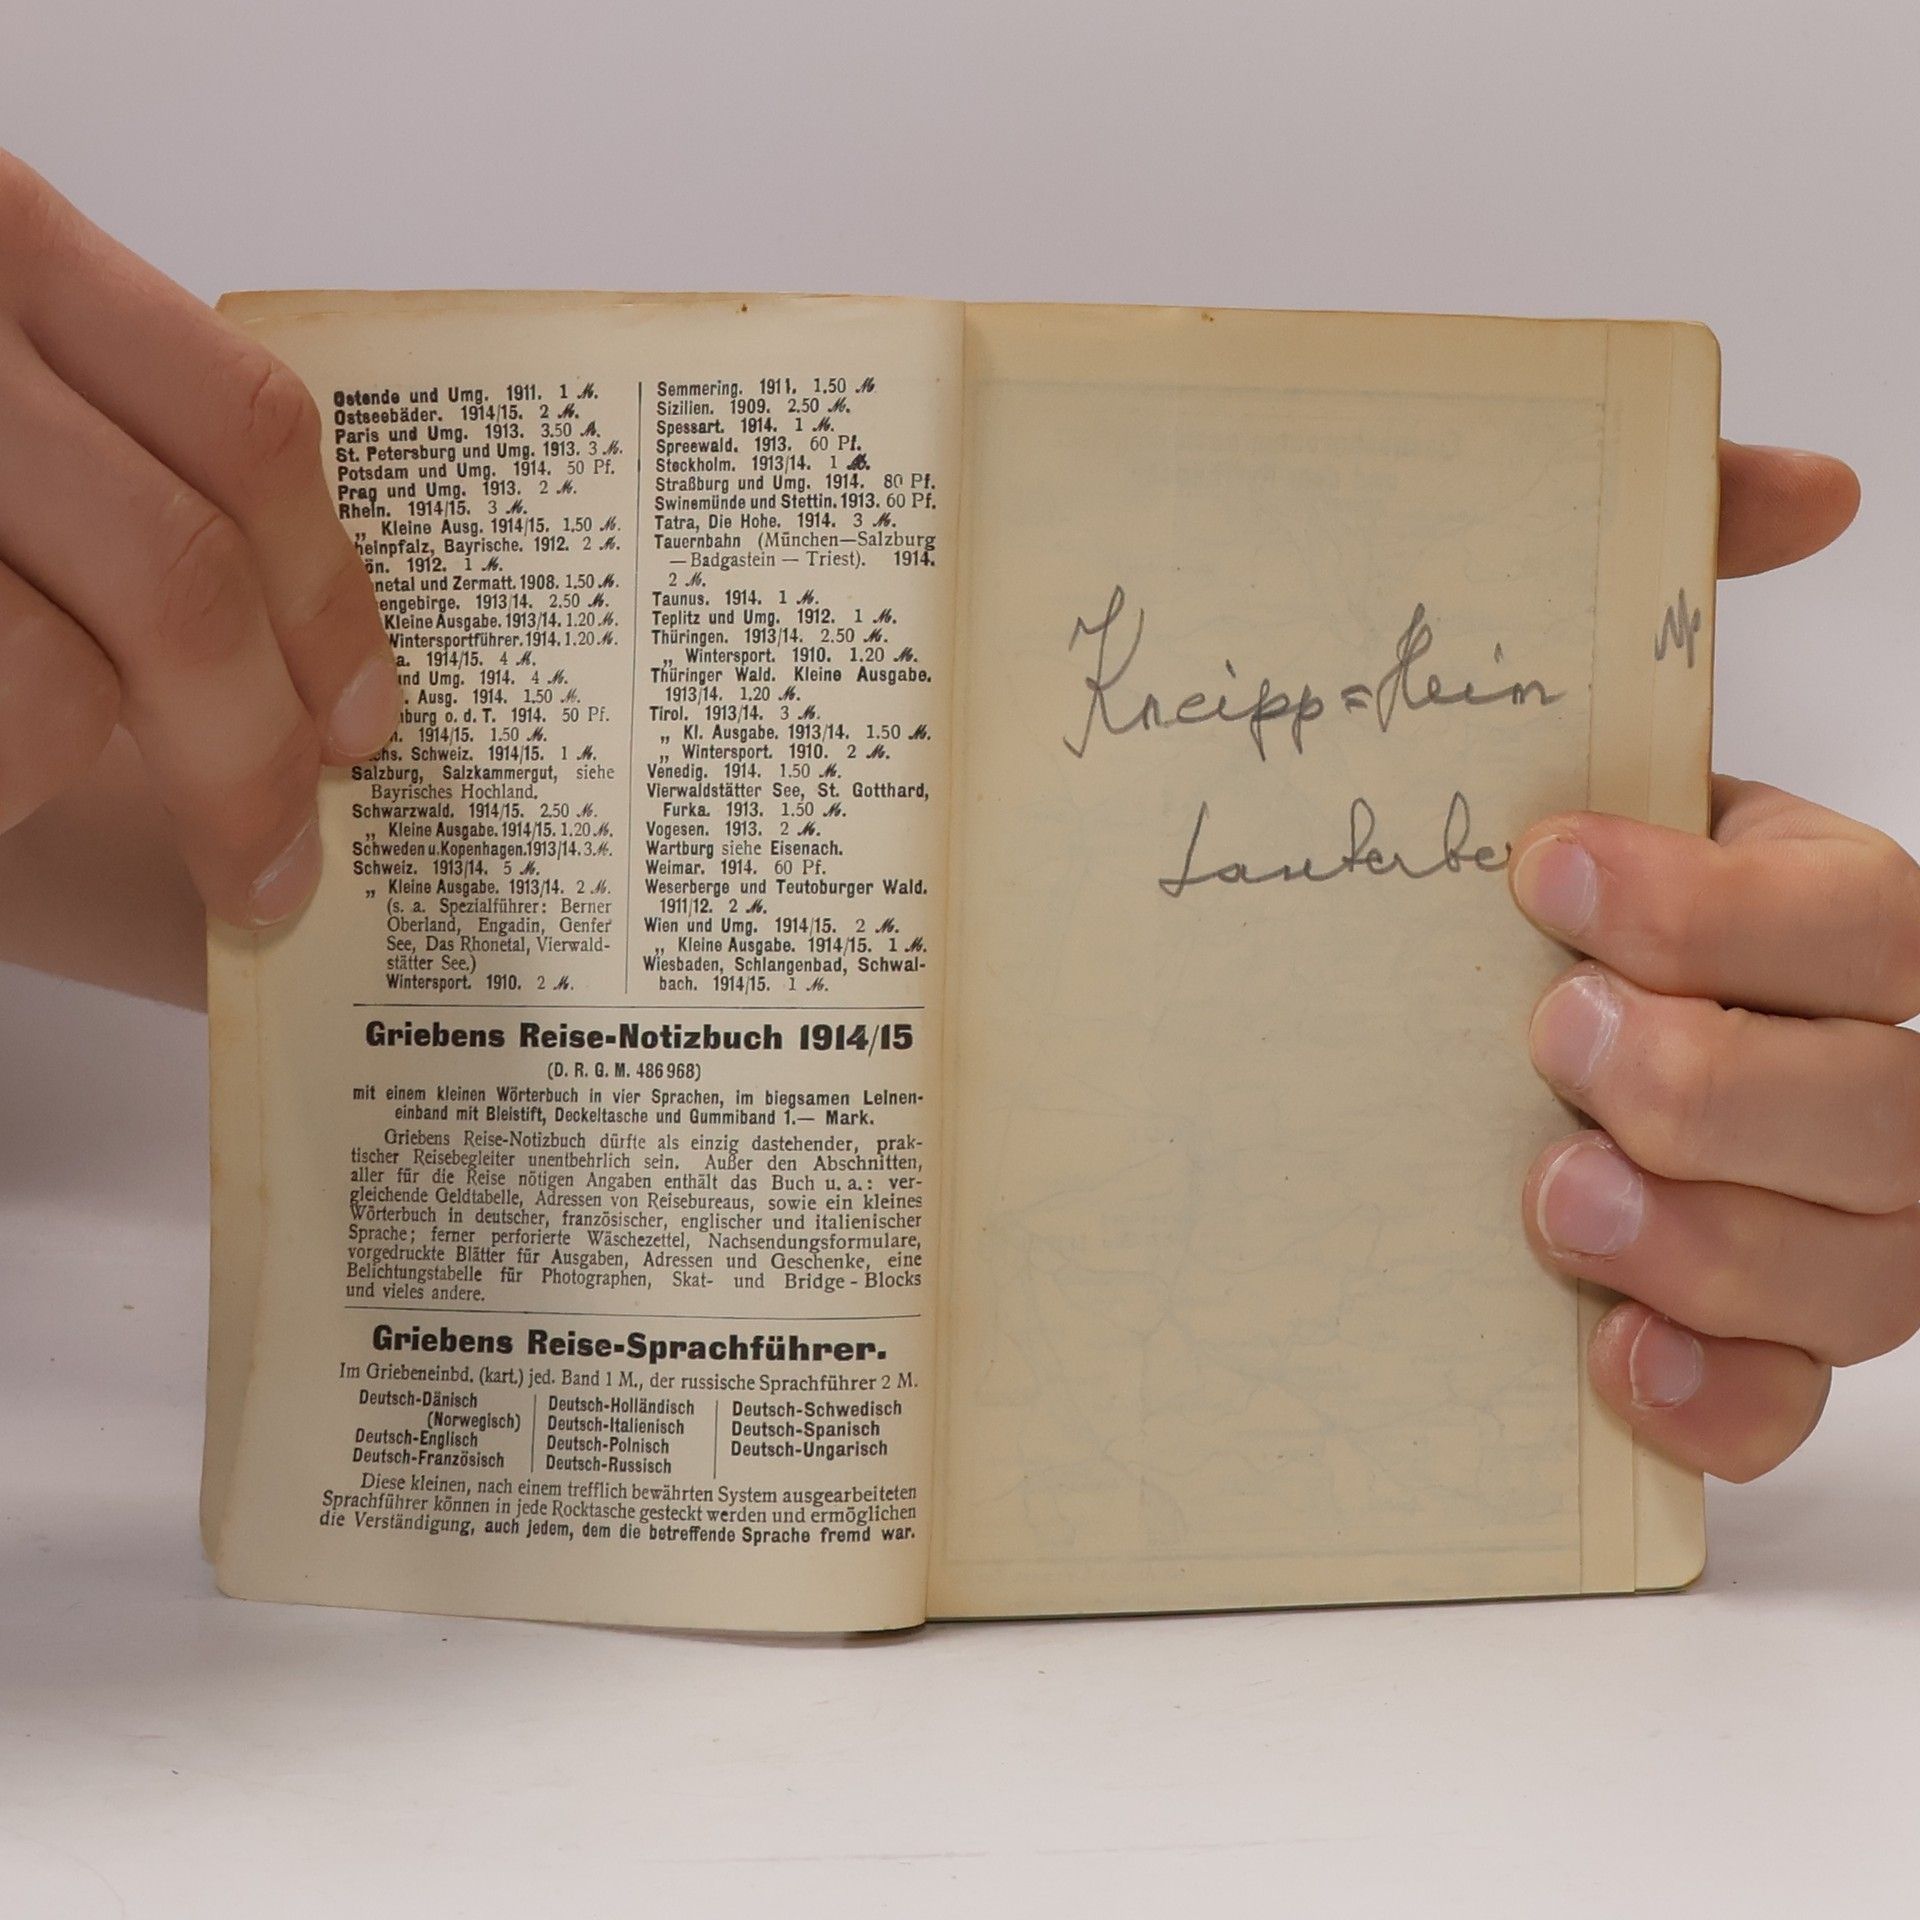 Ostende und Umg. 1911. 1 ℳ.
Ostseebäder. 1914/15. 2 ℳ.
Paris und Umg. 1913. 3.50 ℳ.
St. Petersburg und Umg. 1913. 3 ℳ.
Potsdam und Umg. 1914. 50 Pf.
Prag und Umg. 1913. 2 ℳ.
Rhein. 1914/15. 3 ℳ.
„ Kleine Ausg. 1914/15. 1.50 ℳ.
heinpfalz, Bayrische. 1912. 2 ℳ.
ön. 1912. 1 ℳ.
netal und Zermatt. 1908. 1.50 ℳ.
engebirge. 1913/14. 2.50 ℳ.
Kleine Ausgabe. 1913/14. 1.20 ℳ.
Wintersportführer. 1914. 1.20 ℳ.
a. 1914/15. 4 ℳ.
und Umg. 1914. 4 ℳ.
. Ausg. 1914. 1.50 ℳ.
burg o. d. T. 1914. 50 Pf.
1914/15. 1.50 ℳ.
hs. Schweiz. 1914/15. 1 ℳ.
Salzburg, Salzkammergut, siehe
Bayrisches Hochland.
Schwarzwald. 1914/15. 2.50 ℳ.
„ Kleine Ausgabe. 1914/15. 1.20 ℳ.
Schweden u. Kopenhagen. 1913/14. 3 ℳ.
Schweiz. 1913/14. 5 ℳ.
„ Kleine Ausgabe. 1913/14. 2 ℳ.
(s. a. Spezialführer: Berner
Oberland, Engadin, Genfer
See, Das Rhonetal, Vierwald-
stätter See.)
Wintersport. 1910. 2 ℳ.
Semmering. 1911. 1.50 ℳ.
Sizilien. 1909. 2.50 ℳ.
Spessart. 1914. 1 ℳ.
Spreewald. 1913. 60 Pf.
Stockholm. 1913/14. 1 ℳ.
Straßburg und Umg. 1914. 80 Pf.
Swinemünde und Stettin. 1913. 60 Pf.
Tatra, Die Hohe. 1914. 3 ℳ.
Tauernbahn (München—Salzburg
— Badgastein — Triest). 1914.
2 ℳ.
Taunus. 1914. 1 ℳ.
Teplitz und Umg. 1912. 1 ℳ.
Thüringen. 1913/14. 2.50 ℳ.
„ Wintersport. 1910. 1.20 ℳ.
Thüringer Wald. Kleine Ausgabe.
1913/14. 1.20 ℳ.
Tirol. 1913/14. 3 ℳ.
„ Kl. Ausgabe. 1913/14. 1.50 ℳ.
„ Wintersport. 1910. 2 ℳ.
Venedig. 1914. 1.50 ℳ.
Vierwaldstätter See, St. Gotthard,
Furka. 1913. 1.50 ℳ.
Vogesen. 1913. 2 ℳ.
Wartburg siehe Eisenach.
Weimar. 1914. 60 Pf.
Weserberge und Teutoburger Wald.
1911/12. 2 ℳ.
Wien und Umg. 1914/15. 2 ℳ.
„ Kleine Ausgabe. 1914/15. 1 ℳ.
Wiesbaden, Schlangenbad, Schwal-
bach. 1914/15. 1 ℳ.
Griebens Reise-Notizbuch 1914/15
(D. R. G. M. 486 968)
mit einem kleinen Wörterbuch in vier Sprachen, im biegsamen Leinen-
einband mit Bleistift, Deckeltasche und Gummiband 1.— Mark.
Griebens Reise-Notizbuch dürfte als einzig dastehender, prak-
tischer Reisebegleiter unentbehrlich sein. Außer den Abschnitten,
aller für die Reise nötigen Angaben enthält das Buch u. a.: ver-
gleichende Geldtabelle, Adressen von Reisebureaus, sowie ein kleines
Wörterbuch in deutscher, französischer, englischer und italienischer
Sprache; ferner perforierte Wäschezettel, Nachsendungsformulare,
vorgedruckte Blätter für Ausgaben, Adressen und Geschenke, eine
Belichtungstabelle für Photographen, Skat- und Bridge-Blocks
und vieles andere.
Griebens Reise-Sprachführer.
Im Griebeneinbd. (kart.) jed. Band 1 M., der russische Sprachführer 2 M.
Deutsch-Dänisch
(Norwegisch)
Deutsch-Englisch
Deutsch-Französisch
Deutsch-Holländisch
Deutsch-Italienisch
Deutsch-Polnisch
Deutsch-Russisch
Deutsch-Schwedisch
Deutsch-Spanisch
Deutsch-Ungarisch
Diese kleinen, nach einem trefflich bewährten System ausgearbeiteten
Sprachführer können in jede Rocktasche gesteckt werden und ermöglichen
die Verständigung, auch jedem, dem die betreffende Sprache fremd war.
Kneipp=Heim
Lauterber